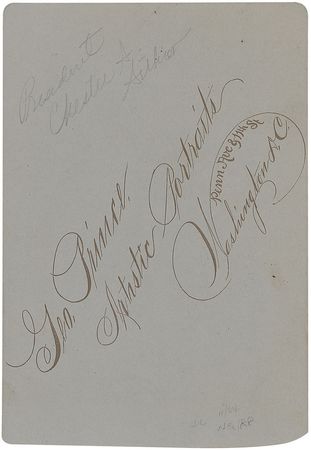 President
Chester A
Arthur
Geo. Prince.
Artistic Portraits
Penn. Ave & 11th St
Washington D.C.